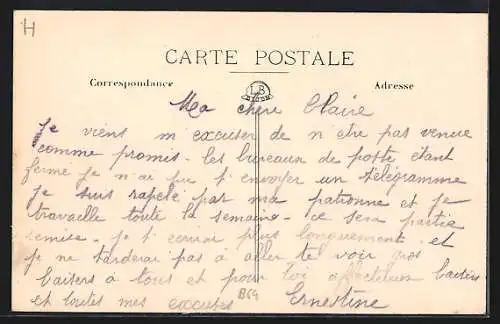 H
CARTE POSTALE
Correspondance
LB
Adresse
Ma chere Claire
Je viens m excuser de n etre pas venue
comme promis. les bureaux de poste étant
fermé je n ai pu t envoyer un télégramme
je suis rapelé par ma patronne et je
travaille toute la semaine - ce sera partie
remise - je t ecrirai plus longuement et
je ne tarderai pas à aller te voir gros
baisers à tous et pour toi affectueux baisers
et toutes mes excuses
B64
Ernestine